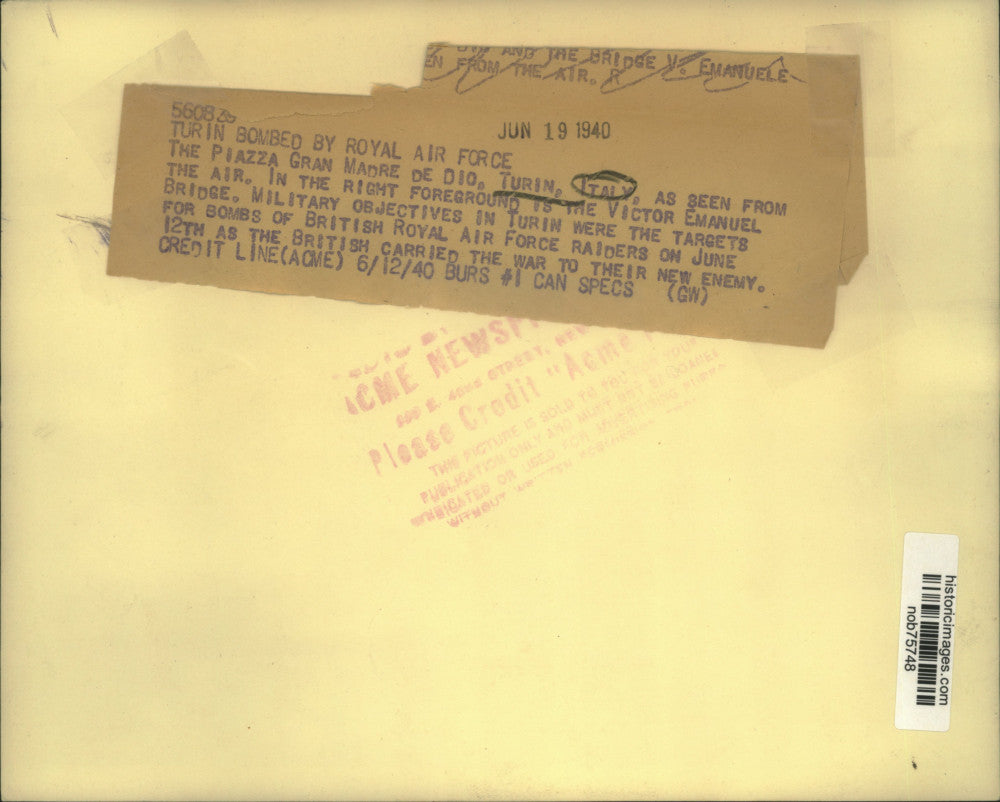 AND THE BRIDGE V. EMANUELE
EN FROM THE AIR. R
560826
JUN 19 1940
TURIN BOMBED BY ROYAL AIR FORCE
THE PIAZZA GRAN MADRE DE DIO, TURIN, ITALY, AS SEEN FROM
THE AIR. IN THE RIGHT FOREGROUND IS THE VICTOR EMANUEL
BRIDGE. MILITARY OBJECTIVES IN TURIN WERE THE TARGETS
FOR BOMBS OF BRITISH ROYAL AIR FORCE RAIDERS ON JUNE
12TH AS THE BRITISH CARRIED THE WAR TO THEIR NEW ENEMY.
CREDIT LINE(ACME) 6/12/40 BURS #1 CAN SPECS (GW)
ACME NEWSP
STREET, NEW
Please Credit "Acme
THIS PICTURE IS SOLD TO YOU FOR YOUR
PUBLICATION ONLY AND MUST NOT BE LOANED
SYNDICATED OR USED FOR ADVERTISING
WITHOUT
historicimages.com
nob75748